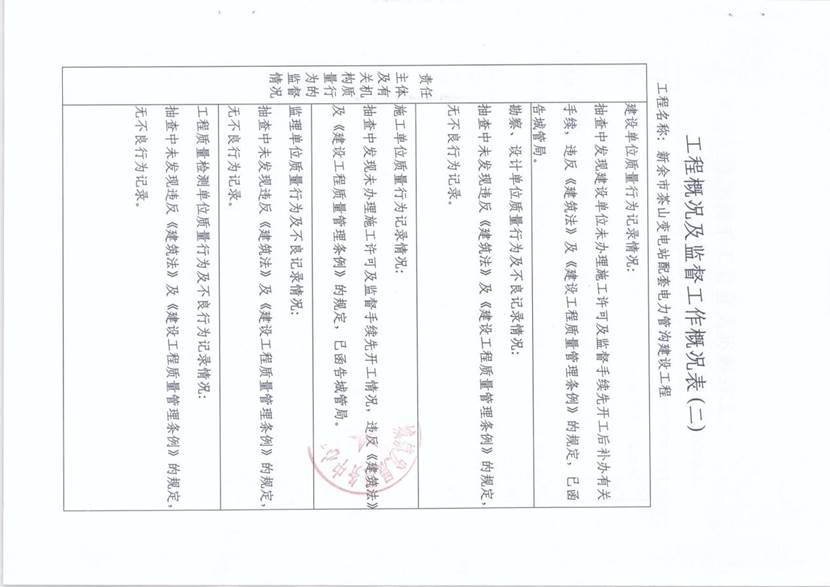 工程概况及监督工作概况表(二)
工程名称：新余市茶山变电站配套电力管沟建设工程
责任
主体
及有
关机
构质
量行
为的
监督
情况
建设单位质量行为记录情况：
抽查中发现建设单位未办理施工许可及监督手续先开工后补办有关
手续，违反《建筑法》及《建设工程质量管理条例》的规定，已函
告城管局。
勘察、设计单位质量行为及不良记录情况：
抽查中未发现违反《建筑法》及《建设工程质量管理条例》的规定，
无不良行为记录。
施工单位质量行为记录情况：
抽查中发现未办理施工许可及监督手续先开工情况，违反《建筑法》
及《建设工程质量管理条例》的规定，已函告城管局。
监理单位质量行为及不良记录情况：
抽查中未发现违反《建筑法》及《建设工程质量管理条例》的规定，
无不良行为记录。
工程质量检测单位质量行为及不良行为记录情况：
抽查中未发现违反《建筑法》及《建设工程质量管理条例》的规定，
无不良行为记录。